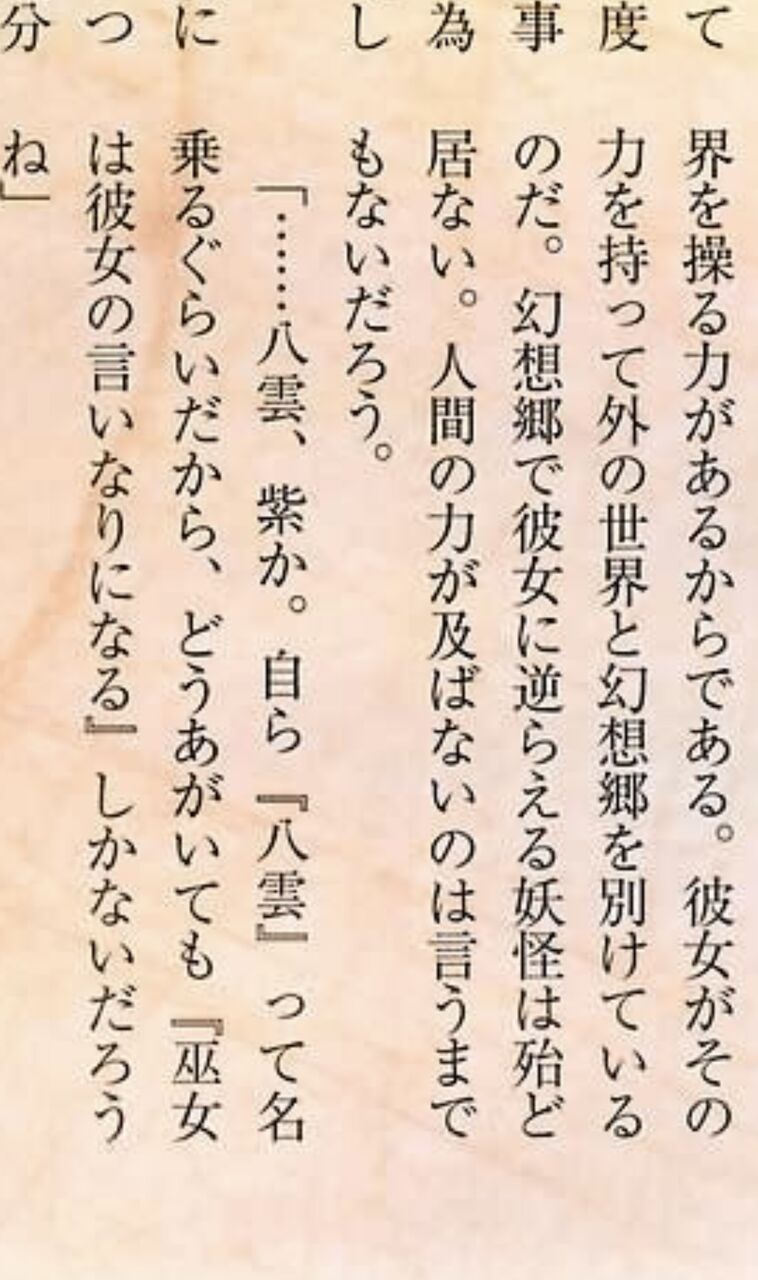 て
度
事
為
し
に
つ
分
界を操る力があるからである。彼女がその
力を持って外の世界と幻想郷を別けている
のだ。幻想郷で彼女に逆らえる妖怪は殆ど
居ない。人間の力が及ばないのは言うまで
もないだろう。
「……八雲、紫か。自ら『八雲』って名
乗るぐらいだから、どうあがいても『巫女
は彼女の言いなりになる』しかないだろう
ね」